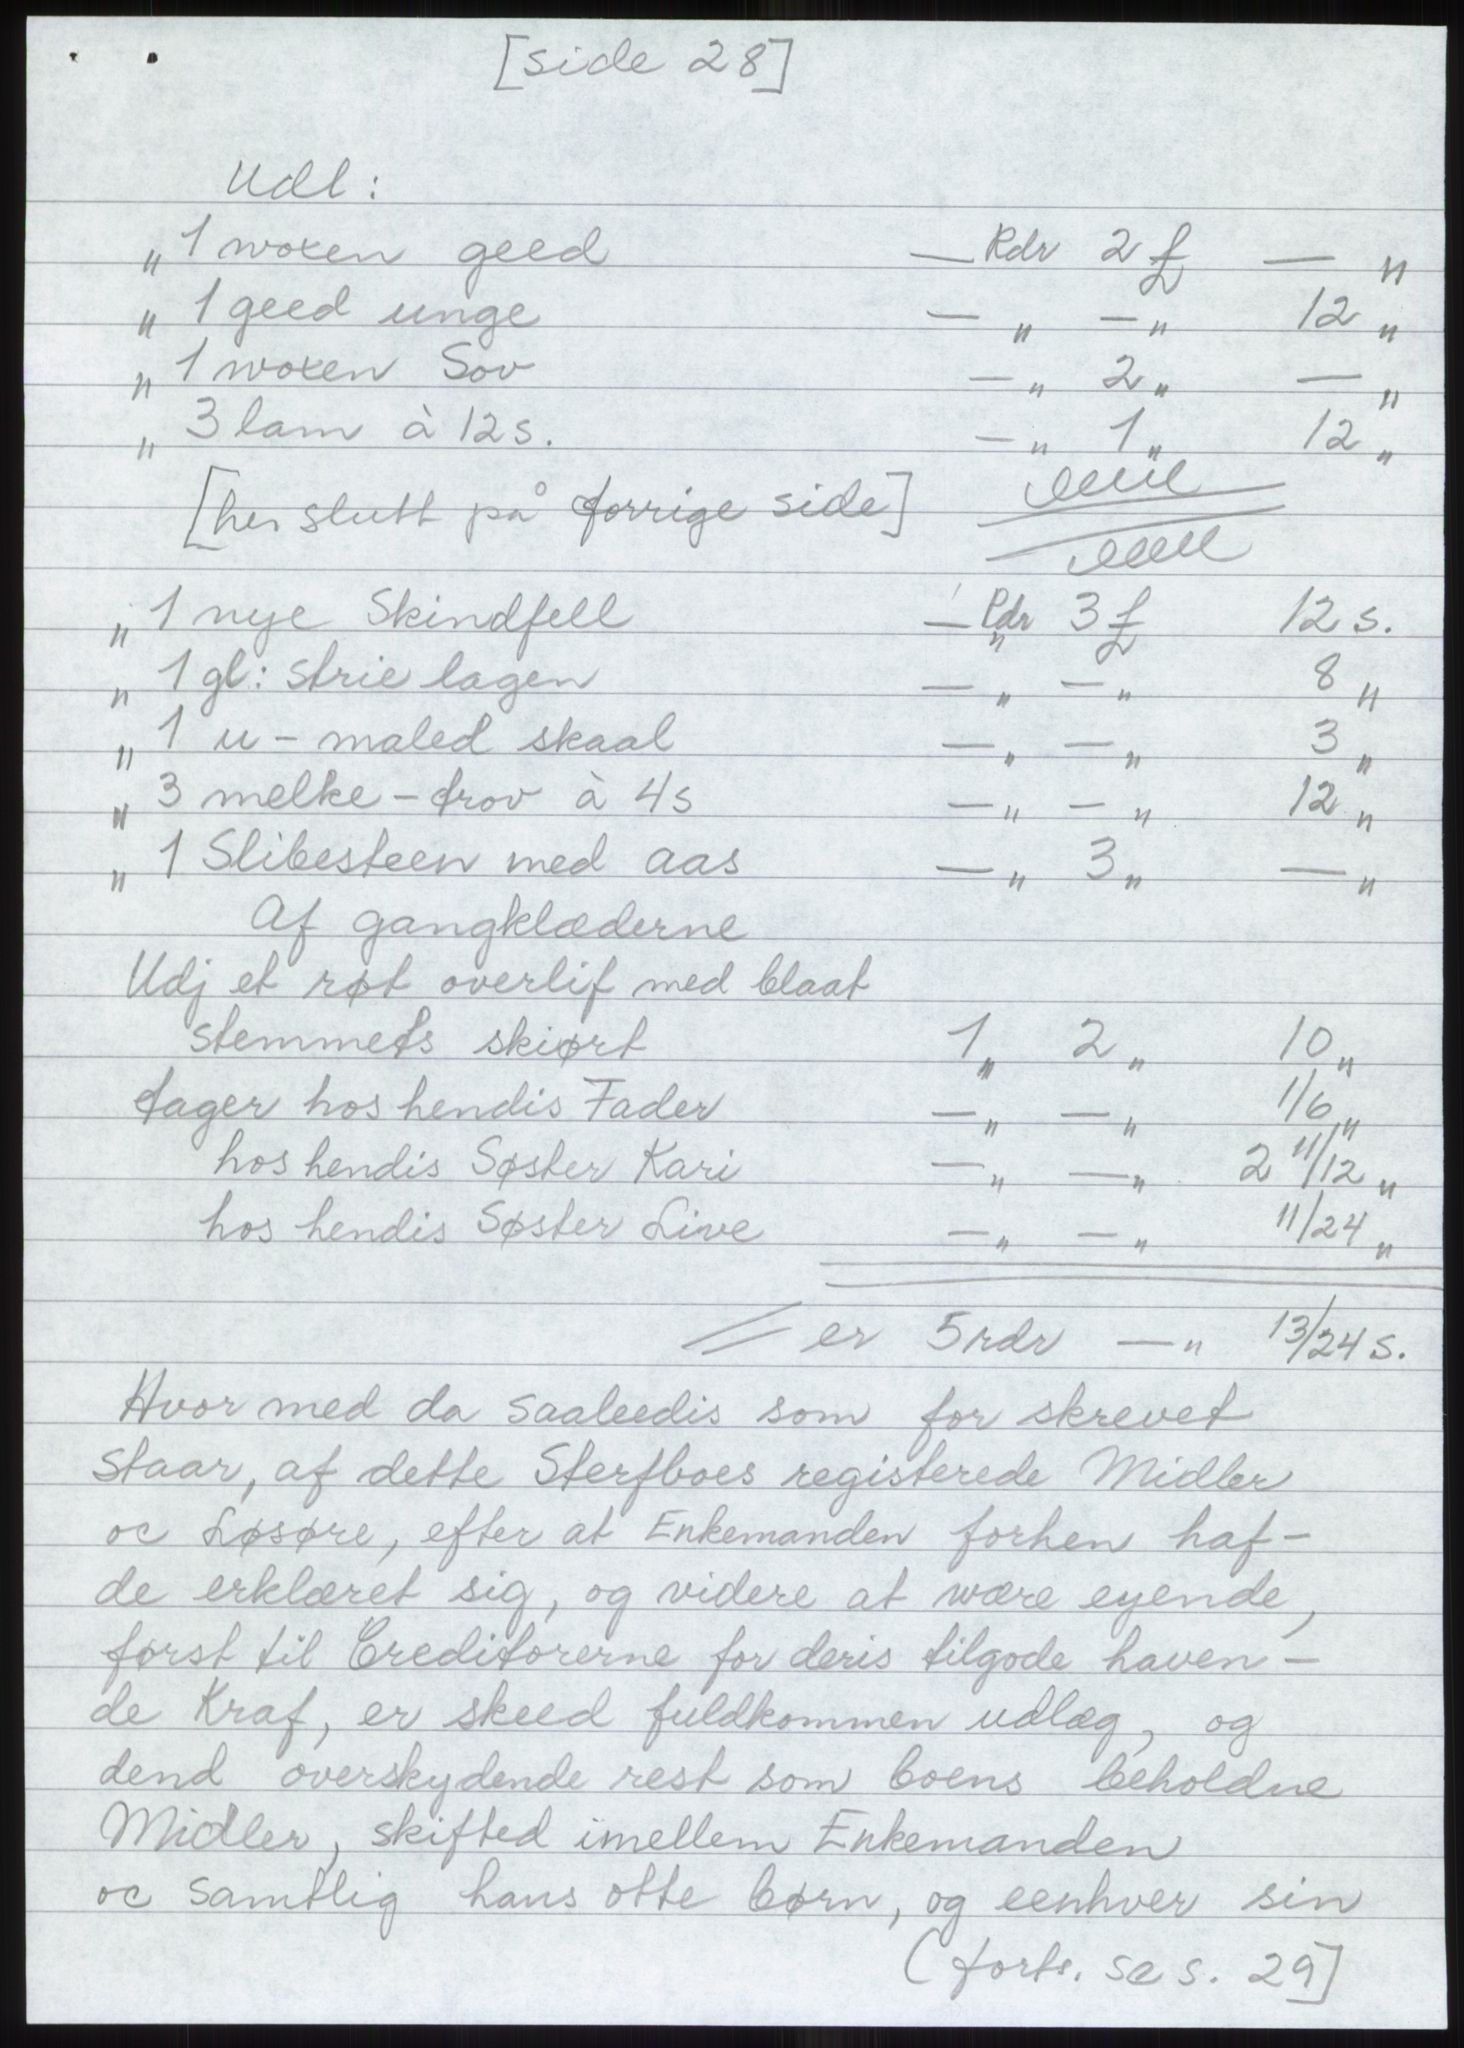 [side 28]
Udl:
" 1 woxen geed — Rdr 2 £ — "
" 1 geed unge — " — " 12 "
" 1 woxen Sov — " 2 " — "
" 3 lam à 12 s. — " 1 " 12 "
[her slutt på forrige side]
" 1 nye Skindfell — Rdr 3 £ 12 s.
" 1 gl: strie lagen — " — " 8 "
" 1 u-maled skaal — " — " 3 "
" 3 melke-trov à 4 s — " — " 12 "
" 1 Slibesteen med aas — " 3 " — "
Af gangklæderne
Udj et røt overlif med blaat
stemmets skiørt 1 " 2 " 10 "
tager hos hendis Fader — " — " 1/6 "
hos hendis Søster Kari — " — " 2 11/12 "
hos hendis Søster Live — " — " 11/24 "
er 5 rdr — " 13/24 s.
Hvor med da saaleedis som for skrevet
staar, af dette Sterfboes registerede Midler
oc Løsøre, efter at Enkemanden forhen haf-
de erklæret sig, og videre at være eyende,
først til Creditorerne for deris tilgode haven-
de Kraf, er skeed fuldkommen udlæg, og
dend overskydende rest som boens beholdne
Midler, skifted imellem Enkemanden
oc samtlig hans otte børn, og eenhver sin
(forts. se s. 29]